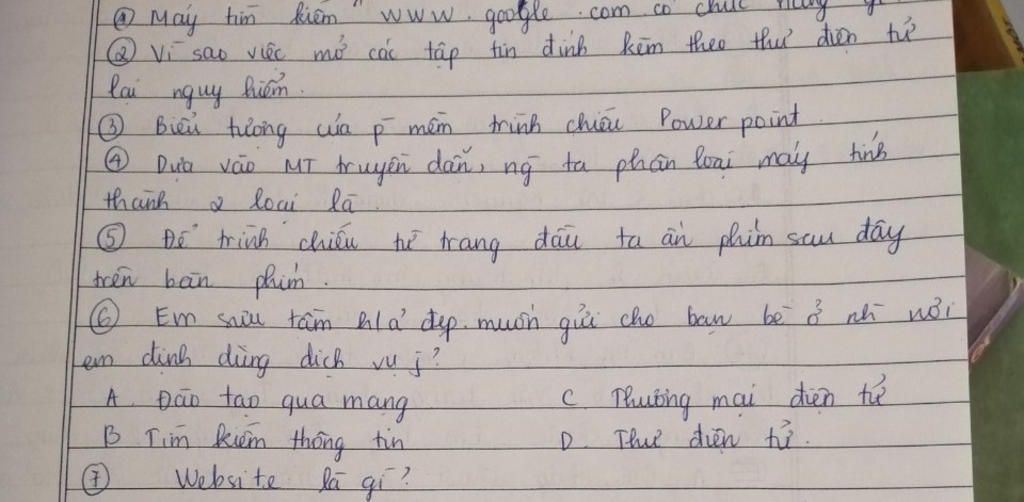 ① Máy tìm kiếm "www.google.com có chức năng gì
② Vì sao việc mở các tập tin đính kèm theo thư điện tử
lại nguy hiểm.
③ Biểu tượng của p̄ mềm trình chiếu Power point
④ Dựa vào MT truyền dẫn, ng̃ ta phân loại máy tính
thành 2 loại là.
⑤ Để trình chiếu từ trang đầu ta ấn phím sau đây
trên bàn phím.
⑥ Em sưu tầm h/ả đẹp. muốn gửi cho bạn bè ở nh̄ nơi
em định dùng dịch vụ j?
A. Đào tạo qua mạng C. Thương mại điện tử
B Tìm kiếm thông tin D. Thư điện tử.
⑦ Website là gì?